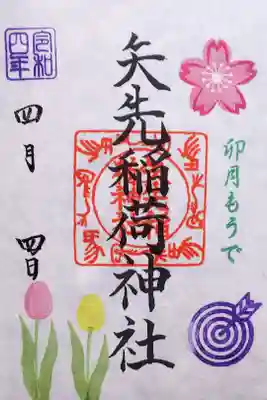 卯月もうで
矢先稲荷神社
令和
四年
四月
四日